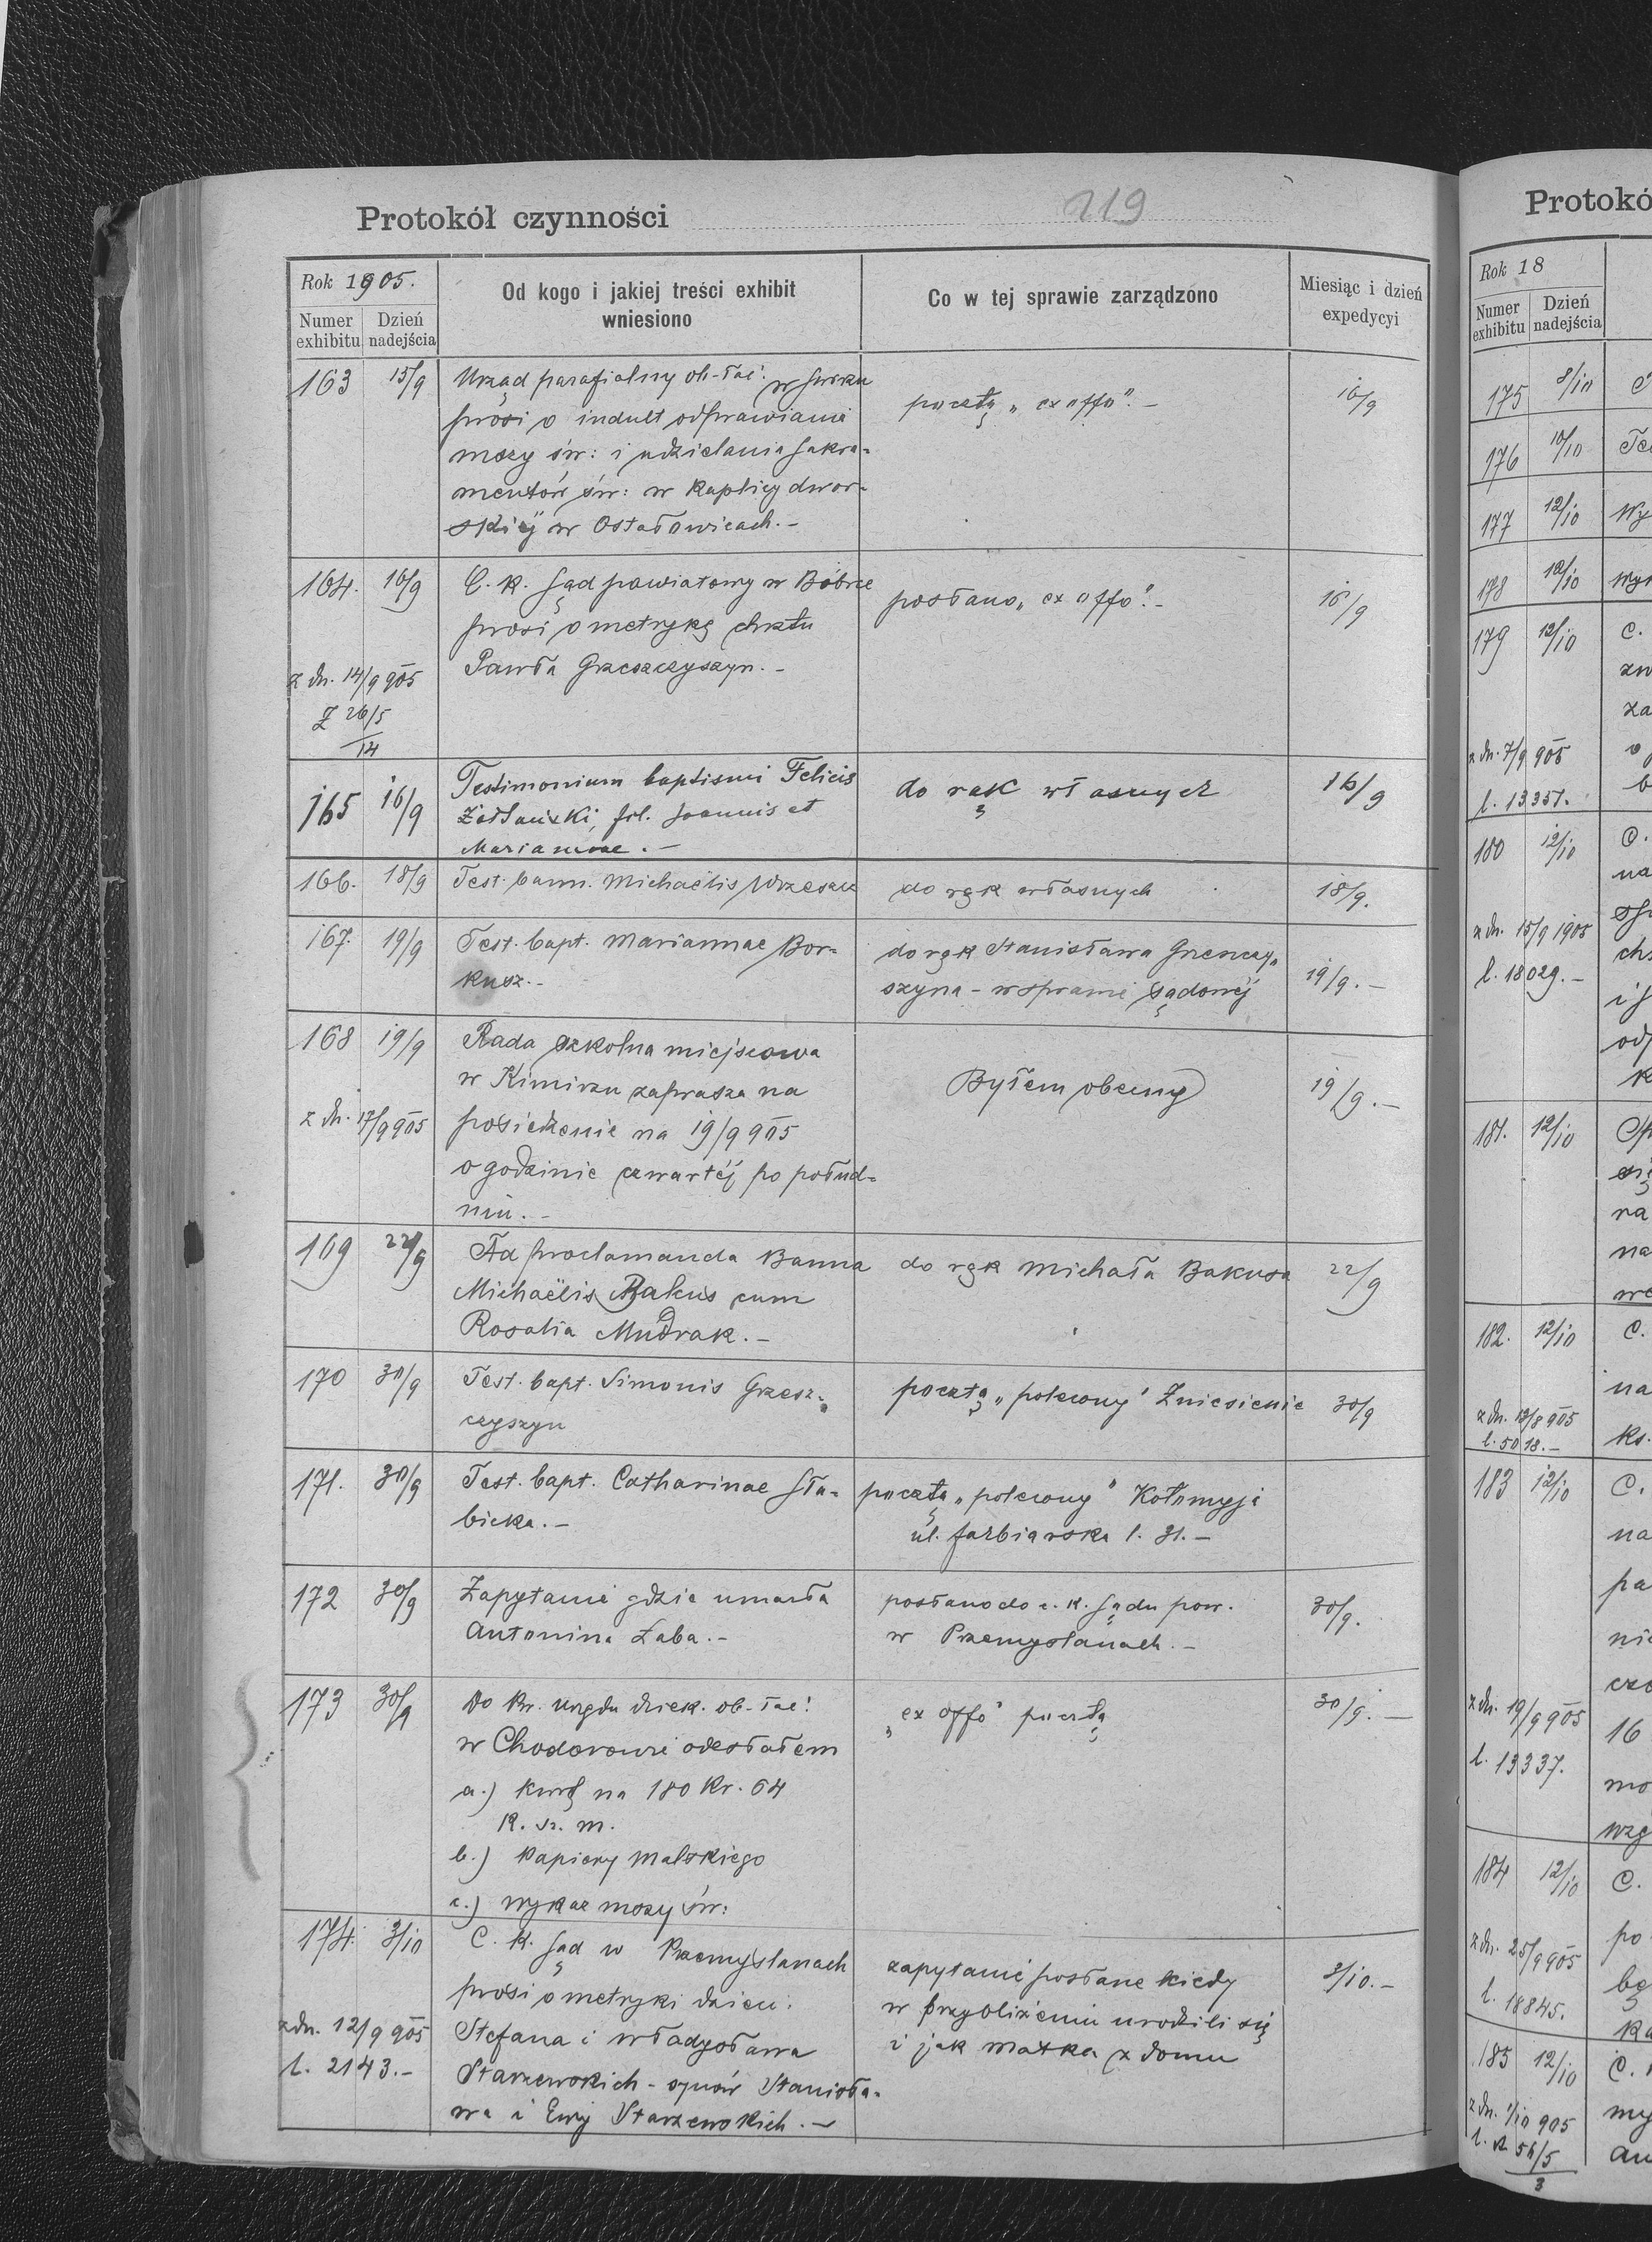 Protokół czynności
219
Rok 1905.
Numer exhibitu
Dzień nadejścia
Od kogo i jakiej treści exhibit
wniesiono
Co w tej sprawie zarządzono
Miesiąc i dzień
expedycyi
163 15/9 Urząd parafialny ob-łać: w Świrzu
prosi o indult odprawiania
mszy św: i udzielania sakra-
mentów św: w kaplicy dwor-
skiej w Ostałowicach.-
pocztą „ex offo".- 16/9
164. 16/9 C. k. Sąd powiatowy w Bóbrce
prosi o metrykę chrztu
Pawła Grzeszczyszyn.-
z dn. 14/9 905
26/5
14
posłano „ex offo".- 16/9
165 16/9 Testimonium baptismi Felicis
fil. Joannis et
Mariannae.-
do rąk własnych 16/9
166. 18/9 Test. bann. Michaëlis Wrzeszcz
do rąk własnych 18/9.
167. 19/9 Test. bapt. Mariannae Bor-
kusz.-
do rąk Stanisława
szyna - w sprawie sądowéj 19/9.-
168 19/9 Rada szkolna miejscowa
w Kimirzu zaprasza na
z dn. 17/9 905 posiedzenie na 19/9 905
o godzinie czwartéj po połud-
niu.-
Byłem obecny 19/9.-
169 22/9 Ad proclamanda Banna
Michaëlis Bakus cum
Rosalia Mudrak.-
do rąk Michała Bakusa 22/9
170 30/9 Test. bapt. Simonis Grzesz-
czyszyn
pocztą „polecony" Zniesienie 30/9
171. 30/9 Test. bapt. Catharinae Sła-
bicka.-
pocztą „polecony" Kołomyja
ul. farbiarska l. 31.-
172 30/9 Zapytanie gdzie umarła
Antonina Żaba.-
posłano do c. k. Sądu pow.
w Przemyślanach.- 30/9.
173 30/9 Do Prz. urzędu dziek. ob-łać:
w Chodorowie odesłałem
a.) kwotę na 180 Kr. 64
b.) papiery Malskiego
c.) wykaz mszy św:
„ex offo" pocztą 30/9.-
174. 3/10 C. k. Sąd w Przemyślanach
prosi o metryki dzieci:
z dn. 12/9 905 Stefana i Władysława
l. 2143.- Starzewskich - synów Stanisła-
wa i Ewy Starzewskich.-
zapytanie posłane kiedy
w przybliżeniu urodzili się
i jak matka z domu
3/10.-
Protokó
Rok 18
Numer exhibitu
Dzień nadejścia
175 8/10
176 10/10
177 12/10 Wy
178 12/10 Wy
179 12/10 C.
zw
za
z dn. 7/9 905
l. 13351.
180 12/10 C.
na
z dn. 15/9 1905
l. 18029.-
181. 12/10
182. 12/10 C.
na
z dn. 13/8 905
l. 5018.- ks.
183 12/10 C.
na
pa
z dn. 19/9 905 16
l. 13337.
184 12/10 C.
z dn. 25/9 905 po
l. 18845.
185 12/10 C.
z dn. 1/10 905
56/5
3